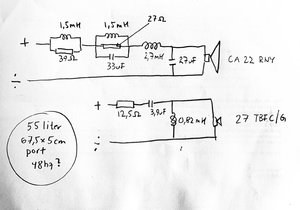 1,5mH
1,5mH
27Ω
+
39Ω
33uF
2,7mH
27uF
CA 22 RNY
÷
+
12,5Ω
3,9uF
0,82mH
27 TBFC/G
÷
55 liter
67,5x5cm
port
48hz?